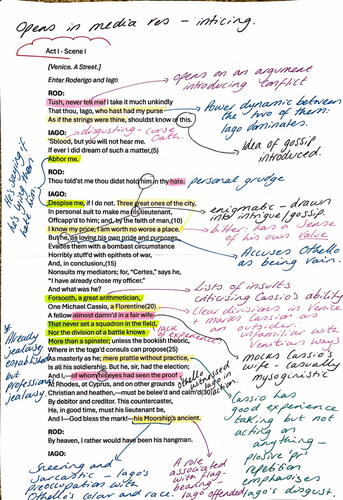 Opens in media res - inticing.
Act I - Scene I
[Venice. A Street.]
Enter Roderigo and Iago
opens on an argument
introducing conflict
ROD:
Tush, never tell me! I take it much unkindly
That thou, Iago, who hast had my purse
As if the strings were thine, shouldst know of this.
Power dynamic between
the two of them:
Iago dominates.
IAGO:
disgusting - curse
Oath.
'Sblood, but you will not hear me.
If ever I did dream of such a matter,(5)
Abhor me.
Idea of gossip
introduced.
ROD:
Thou told'st me thou didst hold him in thy hate.
personal grudge
He's saying if
he's lying then
hate him
IAGO:
Despise me, if I do not. Three great ones of the city,
In personal suit to make me his lieutenant,
Off-capp'd to him; and, by the faith of man,(10)
I know my price; I am worth no worse a place.
But he, as loving his own pride and purposes,
Evades them with a bombast circumstance
Horribly stuff'd with epithets of war,
And, in conclusion,(15)
Nonsuits my mediators; for, "Certes," says he,
"I have already chose my officer."
And what was he?
Forsooth, a great arithmetician,
One Michael Cassio, a Florentine(20)
A fellow almost damn'd in a fair wife,
That never set a squadron in the field,
Nor the division of a battle knows
More than a spinster; unless the bookish theoric,
Where in the toga'd consuls can propose(25)
As masterly as he; mere prattle without practice,
Is all his soldiership. But he, sir, had the election;
And I,—of whom his eyes had seen the proof
At Rhodes, at Cyprus, and on other grounds
Christian and heathen,—must be belee'd and calm'd(30)
By debitor and creditor. This counter­caster,
He, in good time, must his lieutenant be,
And I—God bless the mark!—his Moorship's ancient.
enigmatic - drawn
into intrigue/gossip.
bitter: has a sense
of his own value
Accuses Othello
as being vain.
Lists of insults
criticising Cassio's ability
Clear divisions in Venice
+ marks Cassio as
an outsider,
unfamiliar with
Venetian ways
lack of
experience
mocks Cassio's
wife - casually
mysoginistic
Othello witnessed
Iago in
action
Cassio has
good experience
talking but not
acting on
anything -
plosive 'pr'
repetition
emphasises
Iago's disgust.
* Already
jealousy
established
but
professional
jealousy.
ROD:
By heaven, I rather would have been his hangman.
Sneering and
sarcastic - Iago's
preoccupation with
Othello's colour and race.
A role
associated
with flag-
bearing -
Iago offended